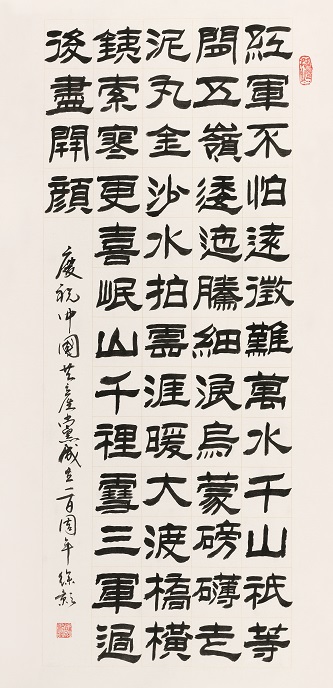 紅軍不怕遠徵難萬水千山祇等
閒五嶺逶迤騰細浪烏蒙磅礴走
泥丸金沙水拍雲涯暖大渡橋橫
銕索寒更喜岷山千裡雪三軍過
後盡開顏
慶祝中國共產黨成立一百周年 徐